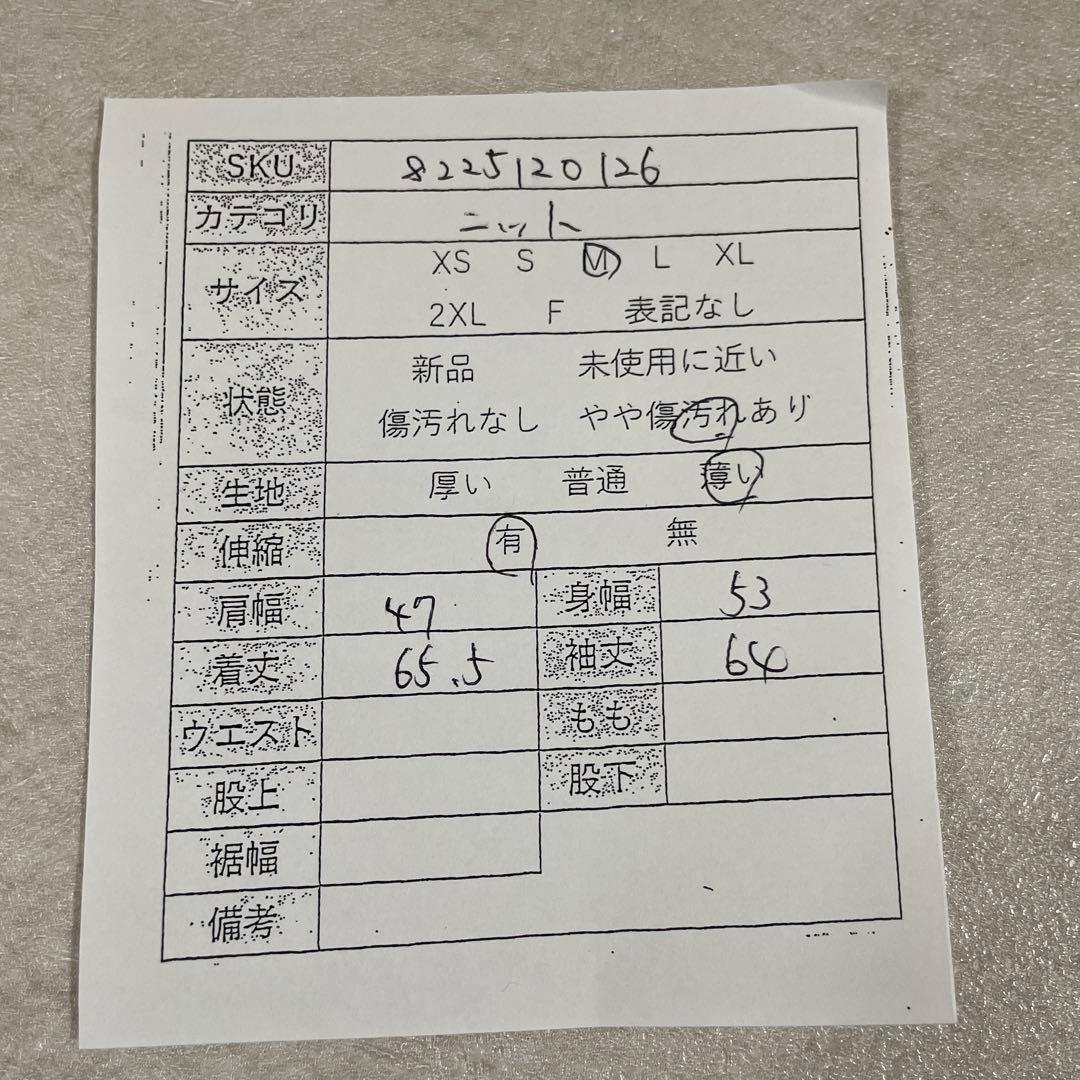 SKU 8225120126
カテゴリ ニット
サイズ XS S M L XL
2XL F 表記なし
状態 新品 未使用に近い
傷汚れなし やや傷汚れあり
生地 厚い 普通 薄い
伸縮 有 無
肩幅 47 身幅 53
着丈 65.5 袖丈 64
ウエスト もも
股上 股下
裾幅
備考